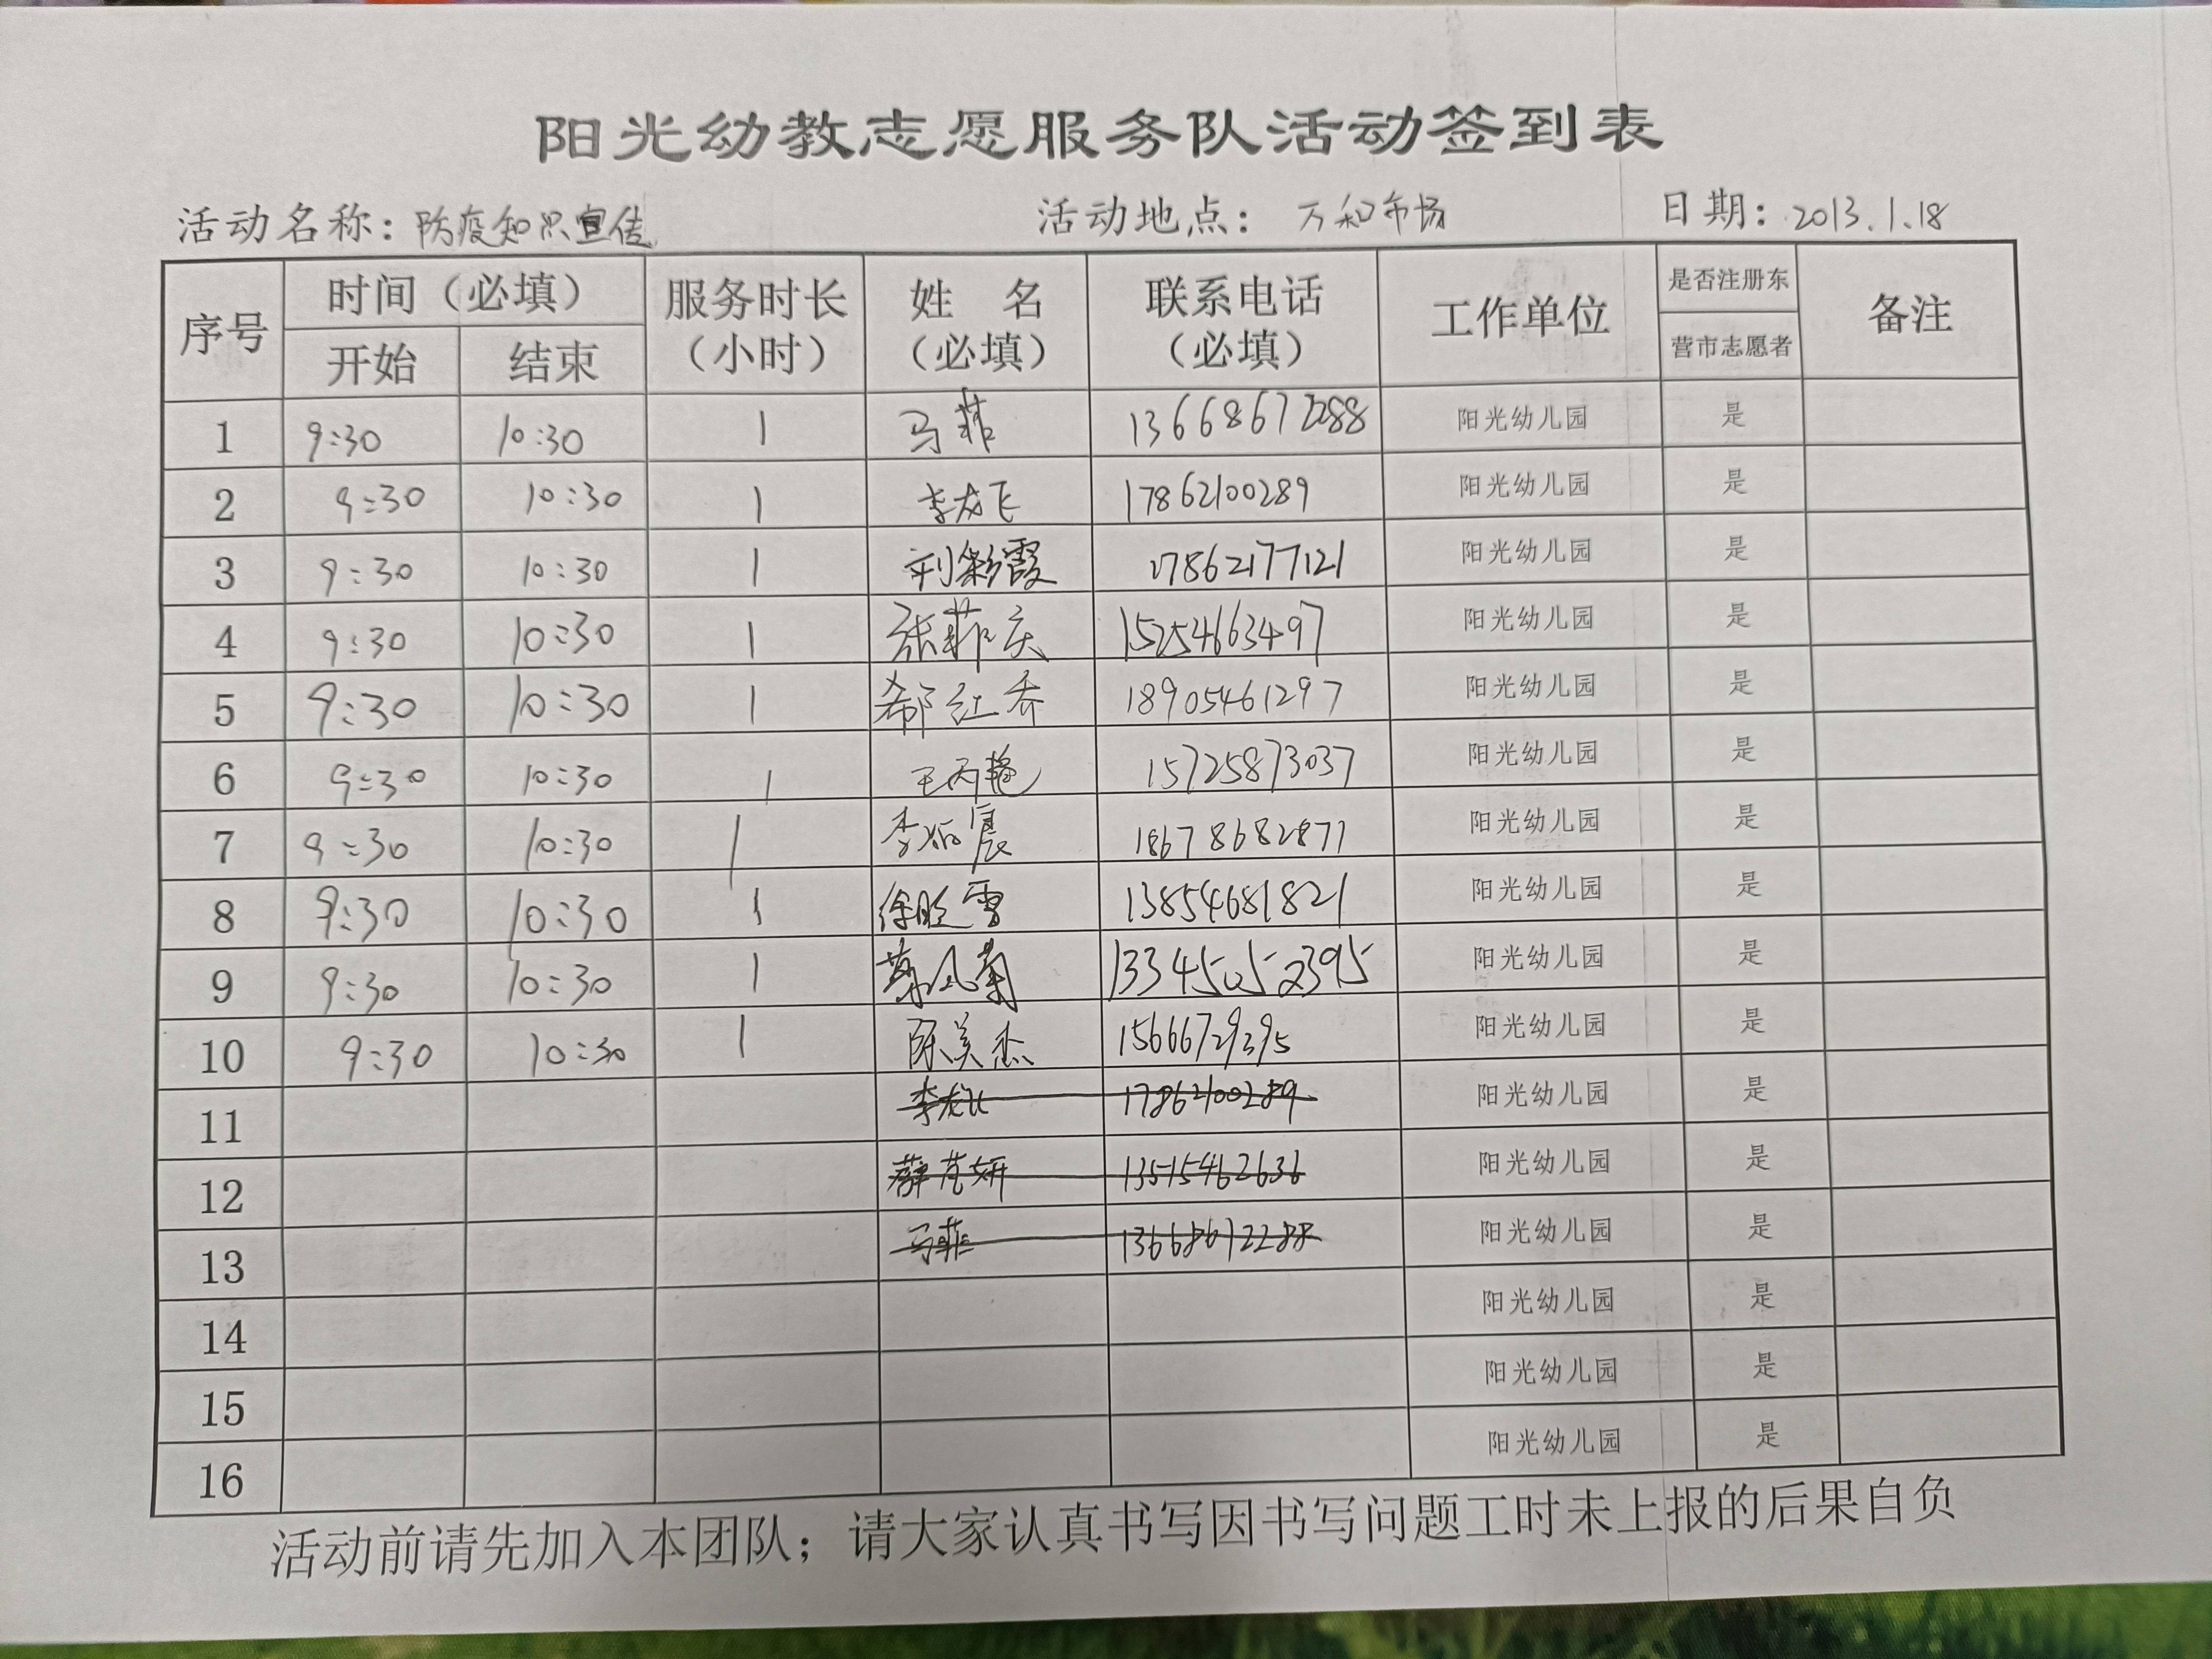 阳光幼教志愿服务队活动签到表
活动名称：防疫知识宣传 活动地点：万和市场 日期：2013.1.18
序号 时间（必填） 服务时长（小时） 姓 名（必填） 联系电话（必填） 工作单位 是否注册东营市志愿者 备注
开始 结束
1 9:30 10:30 1 马菲 13668672288 阳光幼儿园 是
2 9:30 10:30 1 李龙飞 17862100289 阳光幼儿园 是
3 9:30 10:30 1 刘彩霞 17862177121 阳光幼儿园 是
4 9:30 10:30 1 张菲庆 15254663497 阳光幼儿园 是
5 9:30 10:30 1 郗红乔 18905461297 阳光幼儿园 是
6 9:30 10:30 1 王丙艳 15725873037 阳光幼儿园 是
7 9:30 10:30 1 李 18678682877 阳光幼儿园 是
8 9:30 10:30 1 徐晓雪 13854681821 阳光幼儿园 是
9 9:30 10:30 1 13345052395 阳光幼儿园 是
10 9:30 10:30 1 陈美杰 15666729395 阳光幼儿园 是
11 李龙飞 17862100289 阳光幼儿园 是
12 薛艺妍 13515462636 阳光幼儿园 是
13 马菲 13668672288 阳光幼儿园 是
14 阳光幼儿园 是
15 阳光幼儿园 是
16 阳光幼儿园 是
活动前请先加入本团队；请大家认真书写因书写问题工时未上报的后果自负